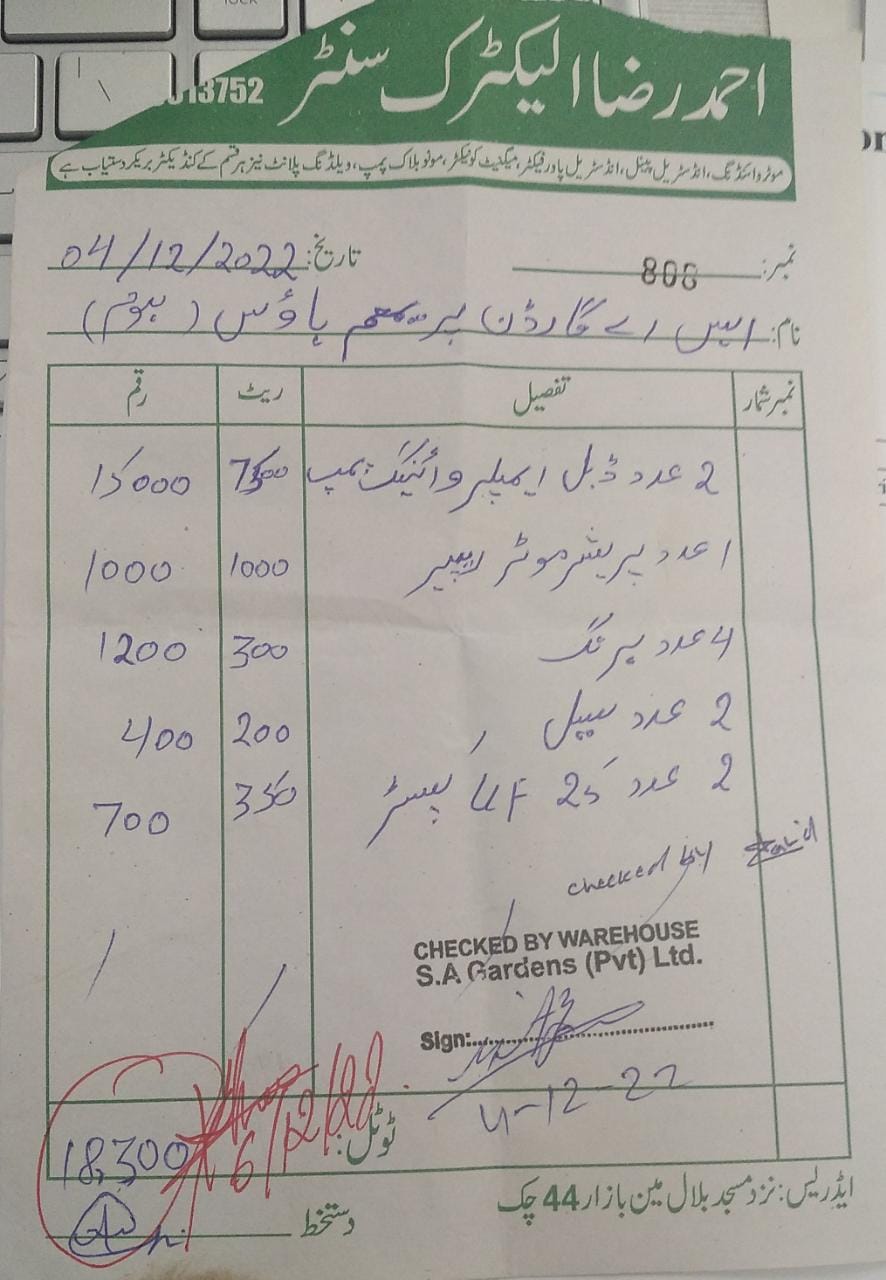 احمد رضا الیکٹرک سنٹر
13752
موٹر وائنڈنگ، انڈسٹریل پینل، انڈسٹریل پاور فیکٹر، میگنیٹ کونیکٹر، مونو بلاک پمپ، ویلڈنگ پلانٹ نیز ہر قسم کے کنڈیکٹر بریکر دستیاب ہے
نمبر: 808 تاریخ: 04/12/2022
نام: ایس اے گارڈن ہاؤس (ہوم)
نمبر شمار تفصیل ریٹ رقم
2 عدد ڈبل ایمپلر وائنڈنگ پمپ 7500 15000
1 عدد پریشر موٹر ریپیر 1000 1000
4 عدد برنگ 300 1200
2 عدد سیل 200 400
2 عدد 25 UF کپسٹر 350 700
checked by
CHECKED BY WAREHOUSE
S.A Gardens (Pvt) Ltd.
Sign:
4-12-22
ٹوٹل: 18,300
6/12/22
دستخط
ایڈریس: نزد مسجد بلال مین بازار 44 چک